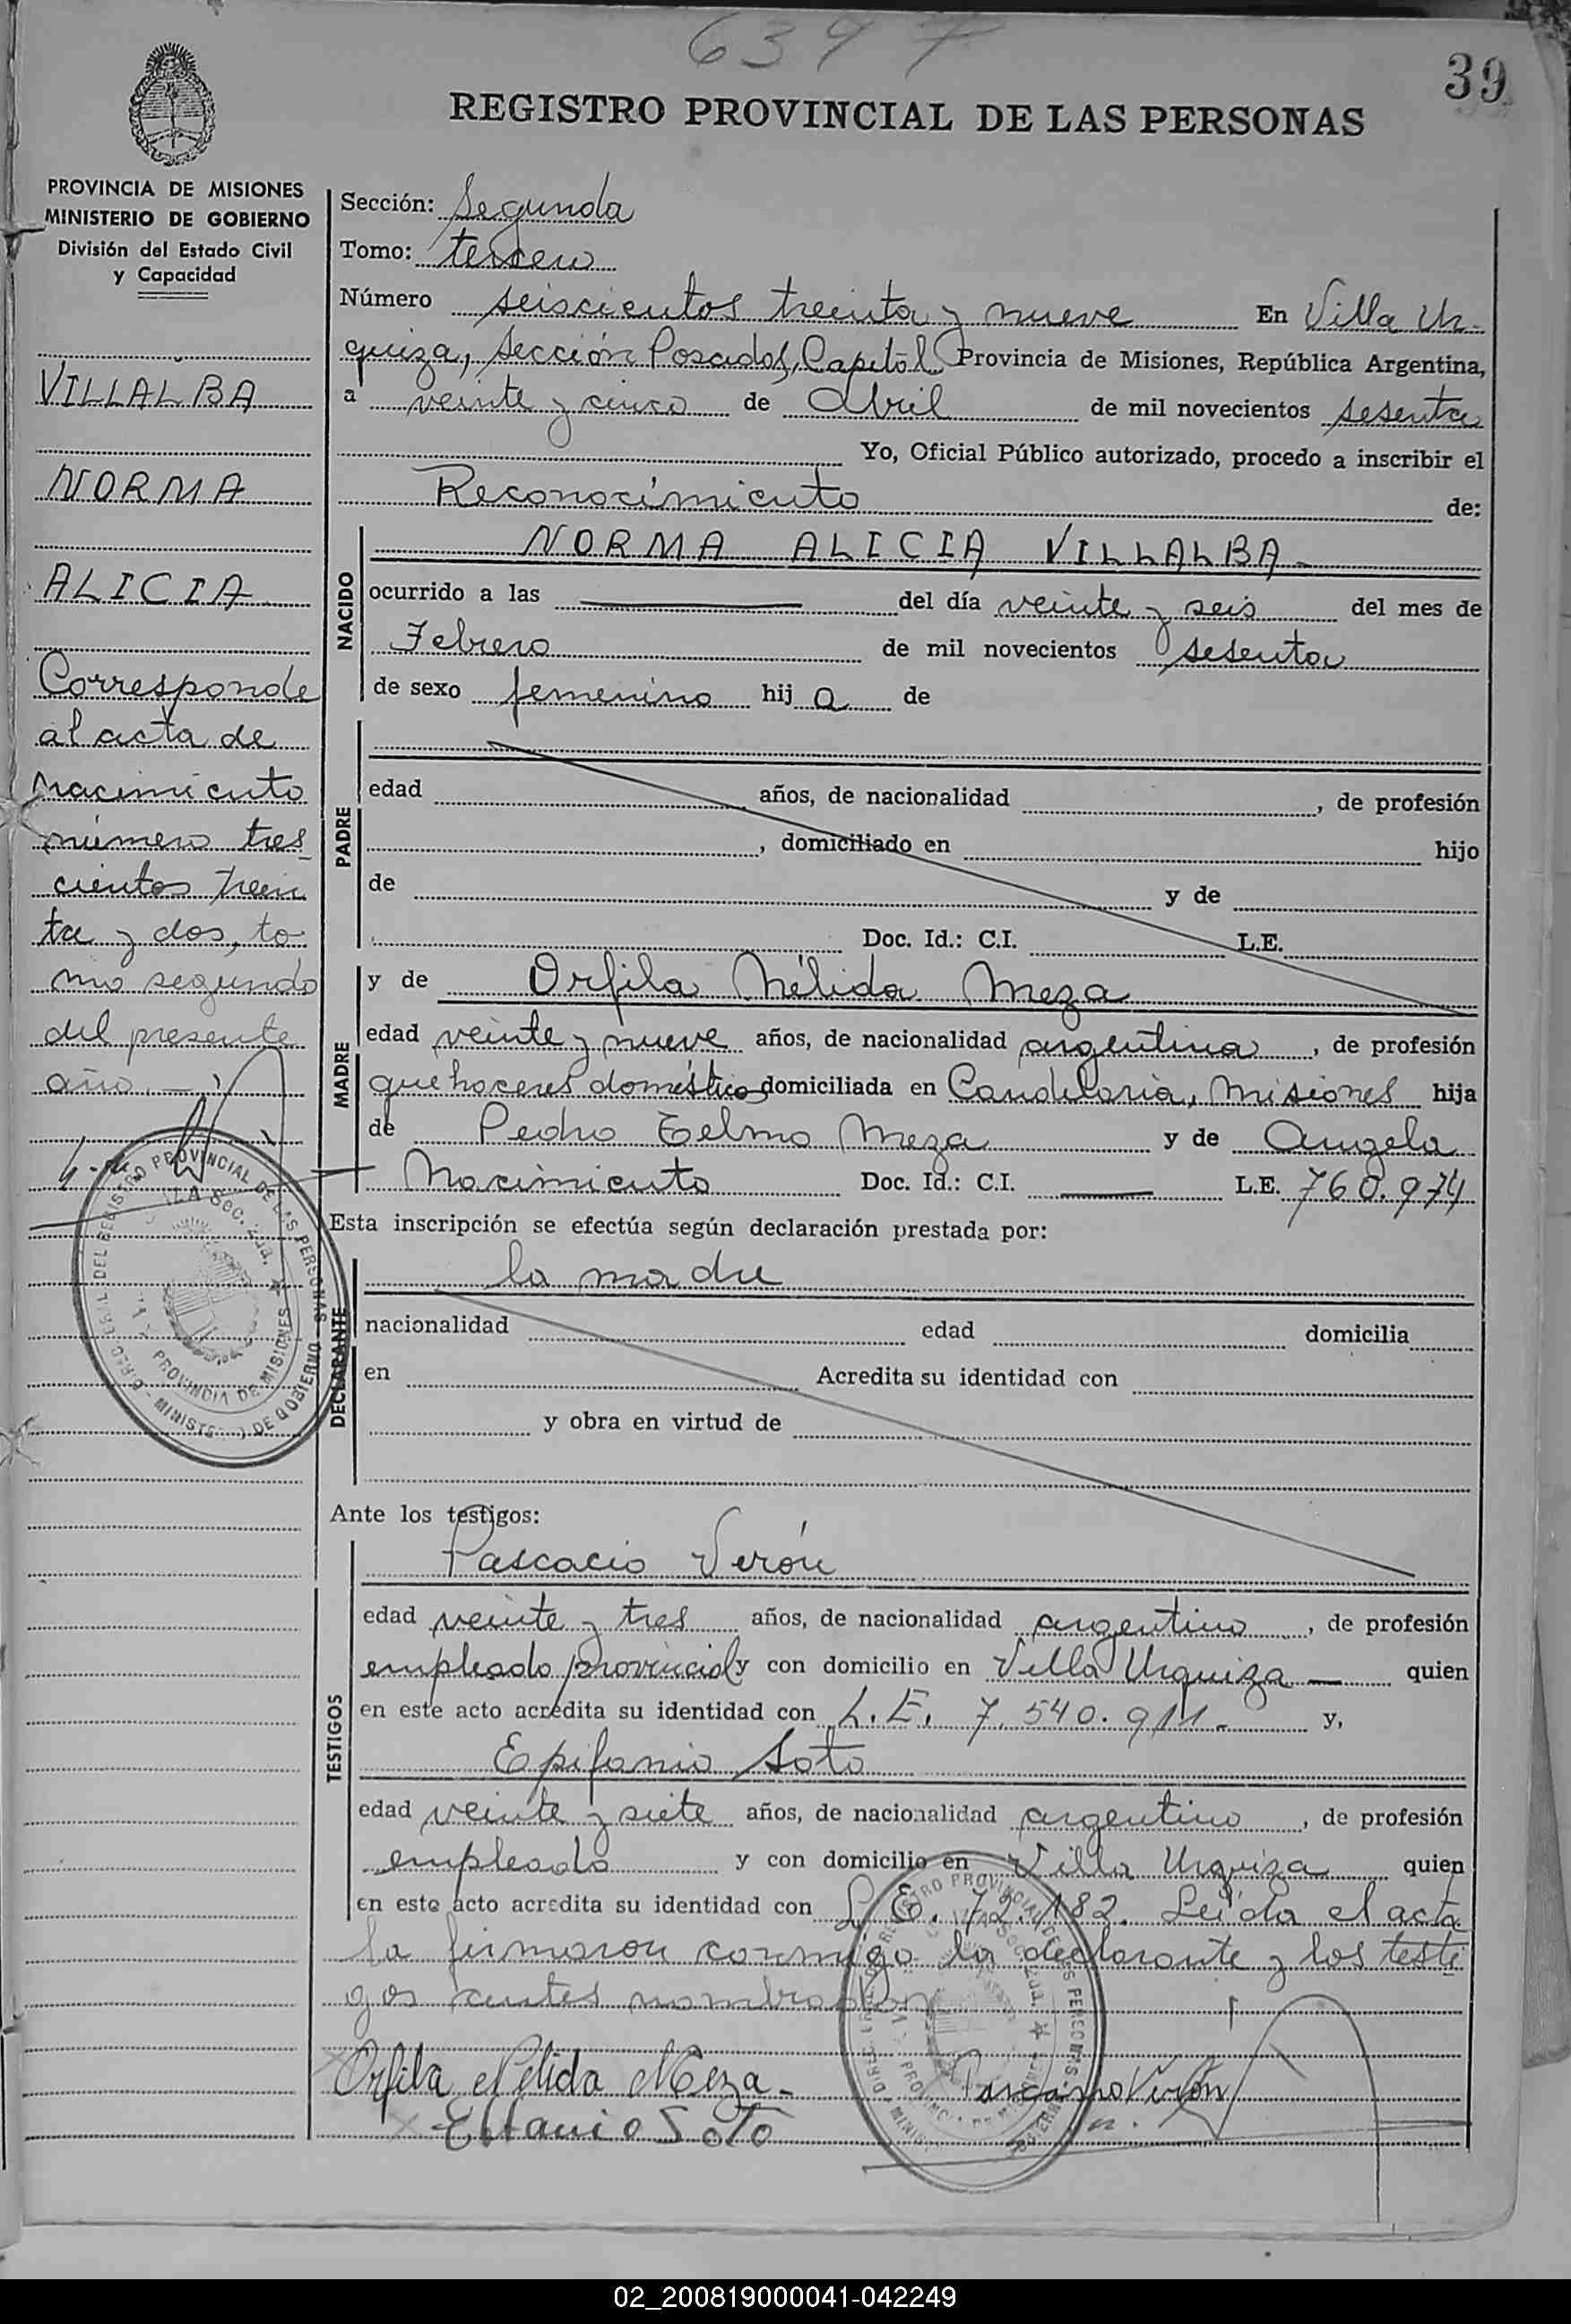 39
REGISTRO PROVINCIAL DE LAS PERSONAS
PROVINCIA DE MISIONES
MINISTERIO DE GOBIERNO
División del Estado Civil
y Capacidad
VILLALBA
NORMA
ALICIA
Corresponde
al acta de
nacimiento
número tres
cientos trein
ta y dos, to
mo segundo
del presente
año.—
Sección: Segunda
Tomo: tercero
Número seiscientos treinta y nueve En Villa Ur-
quiza, Sección Posadas, Capital Provincia de Misiones, República Argentina,
a veinte y cinco de Abril de mil novecientos sesenta
Yo, Oficial Público autorizado, procedo a inscribir el
Reconocimiento de:
NACIDO
NORMA ALICIA VILLALBA -
ocurrido a las del día veinte y seis del mes de
Febrero de mil novecientos sesenta
de sexo femenino hij a de
PADRE
edad años, de nacionalidad , de profesión
, domiciliado en hijo
de y de
Doc. Id.: C.I. L.E.
MADRE
y de Orfila Nélida Meza
edad veinte y nueve años, de nacionalidad argentina , de profesión
quehaceres doméstico domiciliada en Candelaria, Misiones hija
de Pedro Telmo Meza y de Angela
Nacimiento Doc. Id.: C.I. — L.E. 760.974
Esta inscripción se efectúa según declaración prestada por:
DECLARANTE
la madre
nacionalidad edad domicilia
en Acredita su identidad con
y obra en virtud de
Ante los testigos:
TESTIGOS
Pascacio Verón
edad veinte y tres años, de nacionalidad argentino , de profesión
empleado provincial y con domicilio en Villa Urquiza — quien
en este acto acredita su identidad con L.E. 7.540.911- y,
Epifanio Soto
edad veinte y siete años, de nacionalidad argentino , de profesión
empleado y con domicilio en Villa Urquiza quien
en este acto acredita su identidad con L.E. 72.182. Leída el acta
la firmaron conmigo la declarante y los testi
gos antes nombrados
Orfila Nélida Meza -
Verón
Soto
02_200819000041-042249